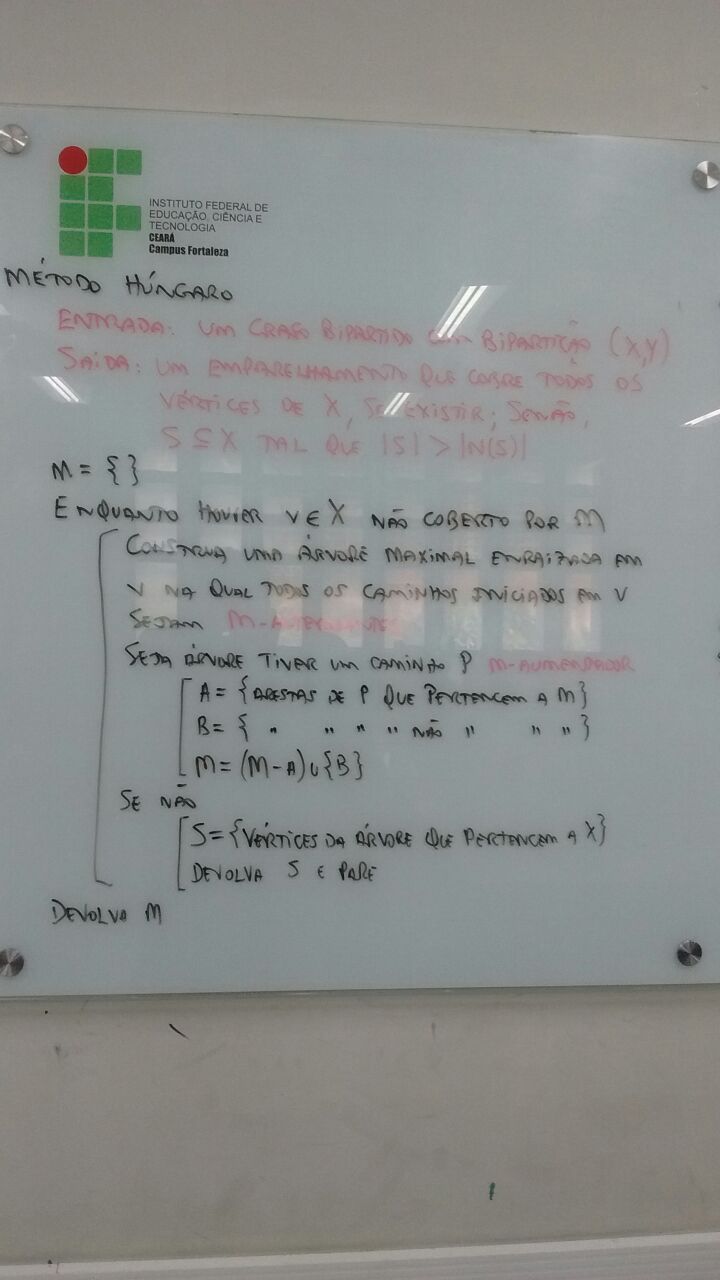 INSTITUTO FEDERAL DE
EDUCAÇÃO, CIÊNCIA E
TECNOLOGIA
CEARÁ
Campus Fortaleza
MÉTODO HÚNGARO
ENTRADA: UM GRAFO BIPARTIDO COM BIPARTIÇÃO (X,Y)
SAÍDA: UM EMPARELHAMENTO QUE COBRE TODOS OS
VÉRTICES DE X, SE EXISTIR; SENÃO,
S ⊆ X TAL QUE |S| > |N(S)|
M = { }
ENQUANTO HOUVER V ∈ X NÃO COBERTO POR M
CONSTRUA UMA ÁRVORE MAXIMAL ENRAIZADA EM
V NA QUAL TODOS OS CAMINHOS INICIADOS EM V
SEJAM M-ALTERNANTES
SE JA ÁRVORE TIVER UM CAMINHO P M-AUMENTADOR
A = {ARESTAS DE P QUE PERTENCEM A M}
B = { " " " " NÃO " " " }
M = (M-A) ∪ {B}
SE NÃO
S = {VÉRTICES DA ÁRVORE QUE PERTENCEM A X}
DEVOLVA S E PARE
DEVOLVA M